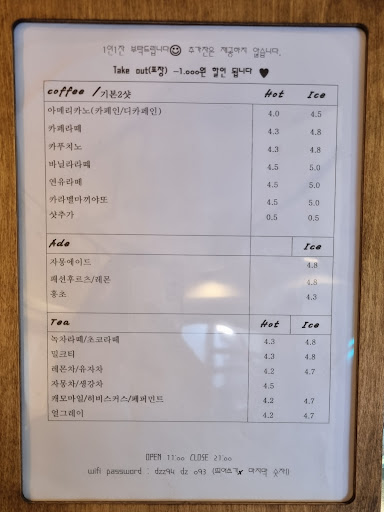 1인1잔 부탁드립니다 추가잔은 제공하지 않습니다.
Take out(포장) -1.000원 할인 됩니다 ♥
coffee /기본2샷 Hot Ice
아메리카노(카페인/디카페인) 4.0 4.5
카페라떼 4.3 4.8
카푸치노 4.3 4.8
바닐라라떼 4.5 5.0
연유라떼 4.5 5.0
카라멜마끼아또 4.5 5.0
샷추가 0.5 0.5
Ade Ice
자몽에이드 4.8
패션후르츠/레몬 4.8
홍초 4.3
Tea Hot Ice
녹차라떼/초코라떼 4.3 4.8
밀크티 4.3 4.8
레몬차/유자차 4.2 4.7
자몽차/생강차 4.5
캐모마일/히비스커스/페퍼민트 4.2 4.7
얼그레이 4.2 4.7
OPEN 11:00 CLOSE 21:00
wifi password : dzz94 dz 093 (띄어쓰기x 마지막 숫자)